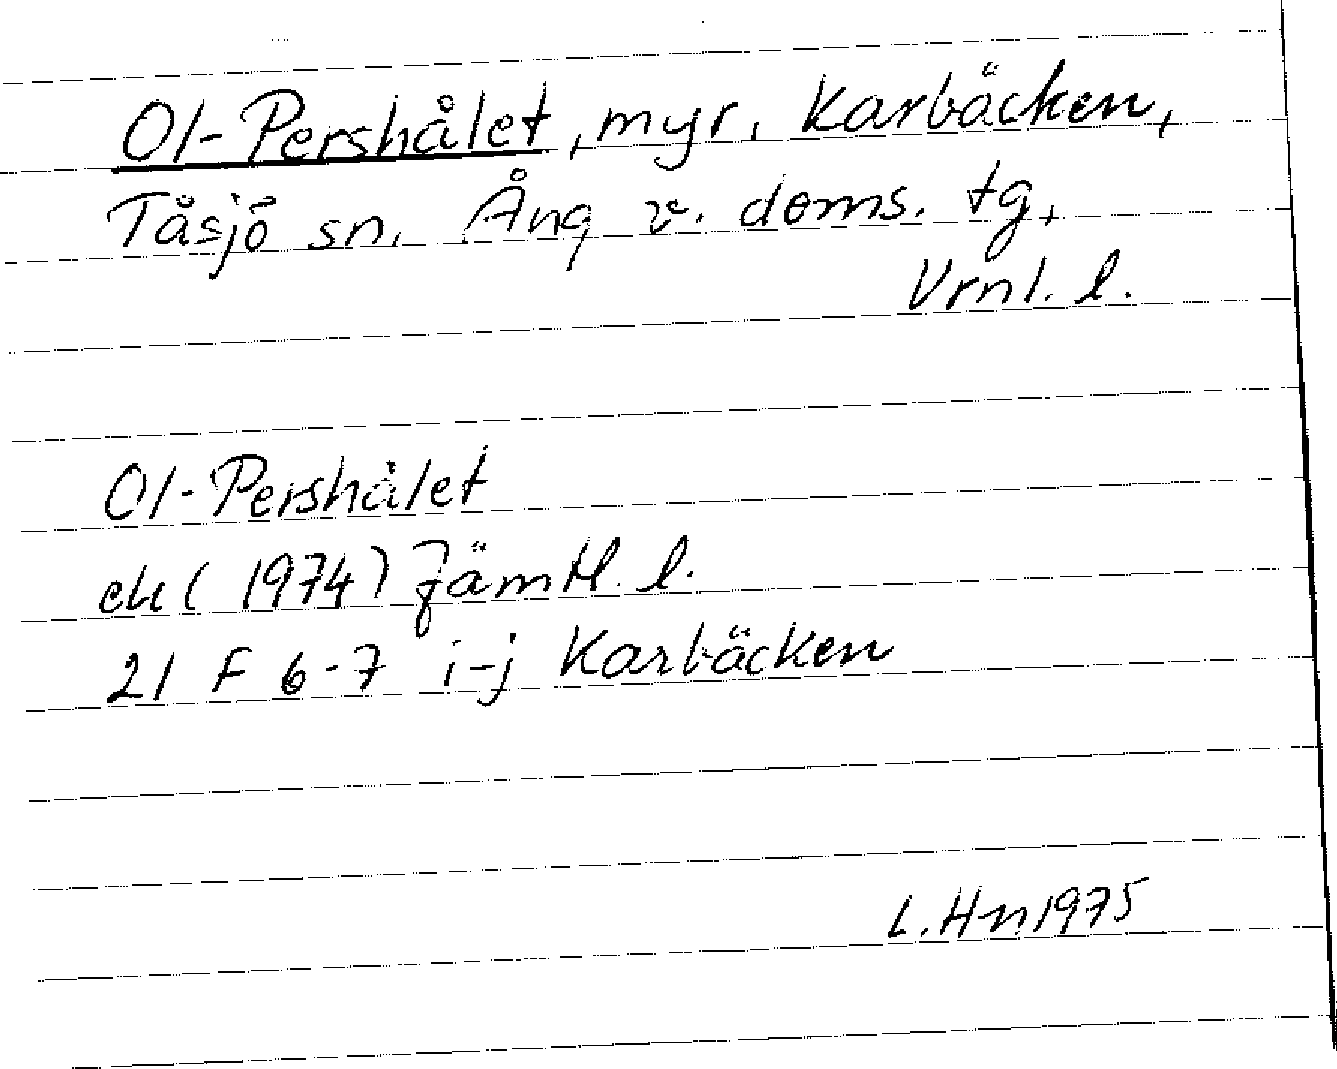 Ol-Pershålet, myr, Karbäcken,
Tåsjö sn. Ång v. doms. tg,
Vrnl. l.
Ol-Pershålet
ek (1974) Jämtl. l.
21 F 6-7 i-j Karbäcken
L. Hn 1975